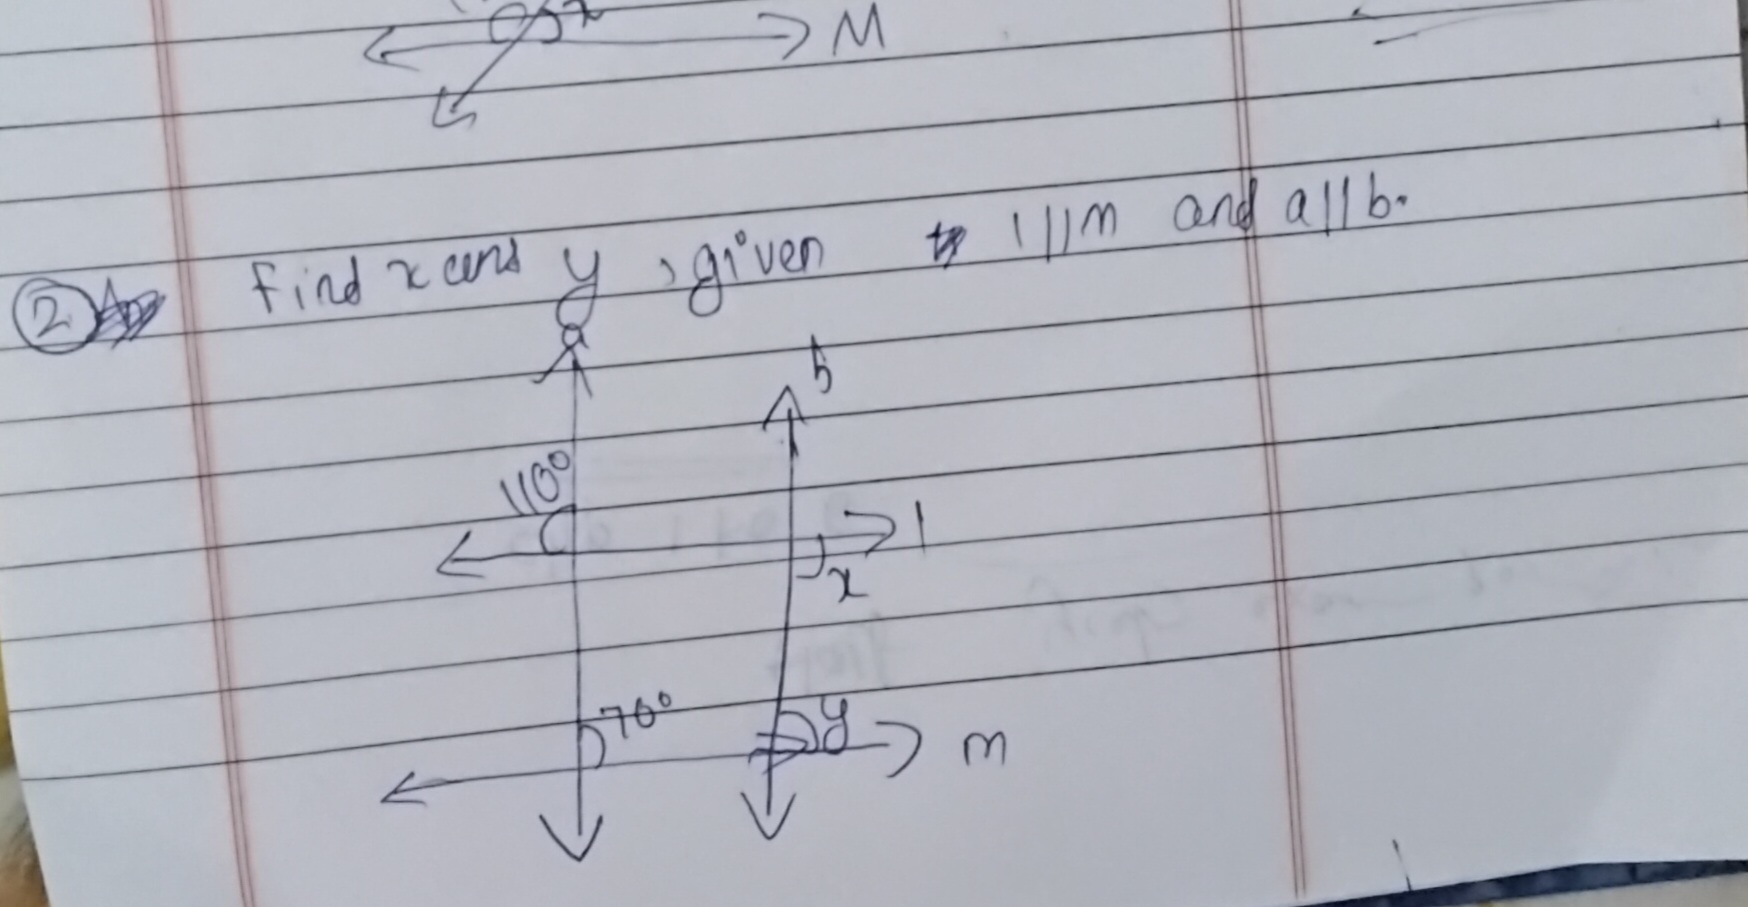 x
M
② Find x and y, given l || m and a || b.
a
b
110°
l
x
70°
y
m